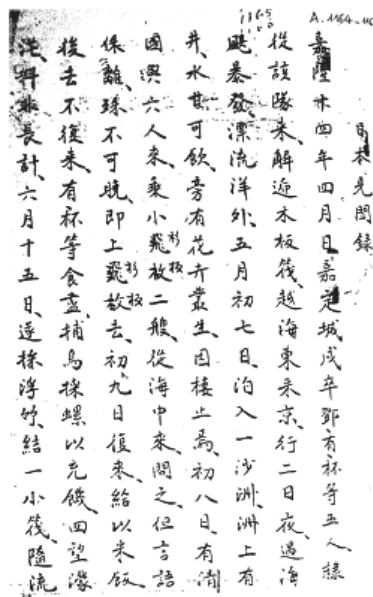 A.1164
日本見聞錄
嘉隆十四年四月日嘉定城戍卒鄧有杯等五人隸
從該隊來解遞木板筏越海東來京行二日夜遇海
颶暴發漂流洋外五月初七日泊入一沙洲洲上有
井水甘可飲旁有花卉叢生因棲止焉初八日有清
國輿六人來乘小飛杉板放二艘從海中來問之但言語
侏離殊不可曉即上飛杉板放去初九日復來給以米飯
後去不復來有杯等食盡捕鳥採螺以充饑四望濛
茫料非長計六月十五日遂採浮竹結一小筏隨流